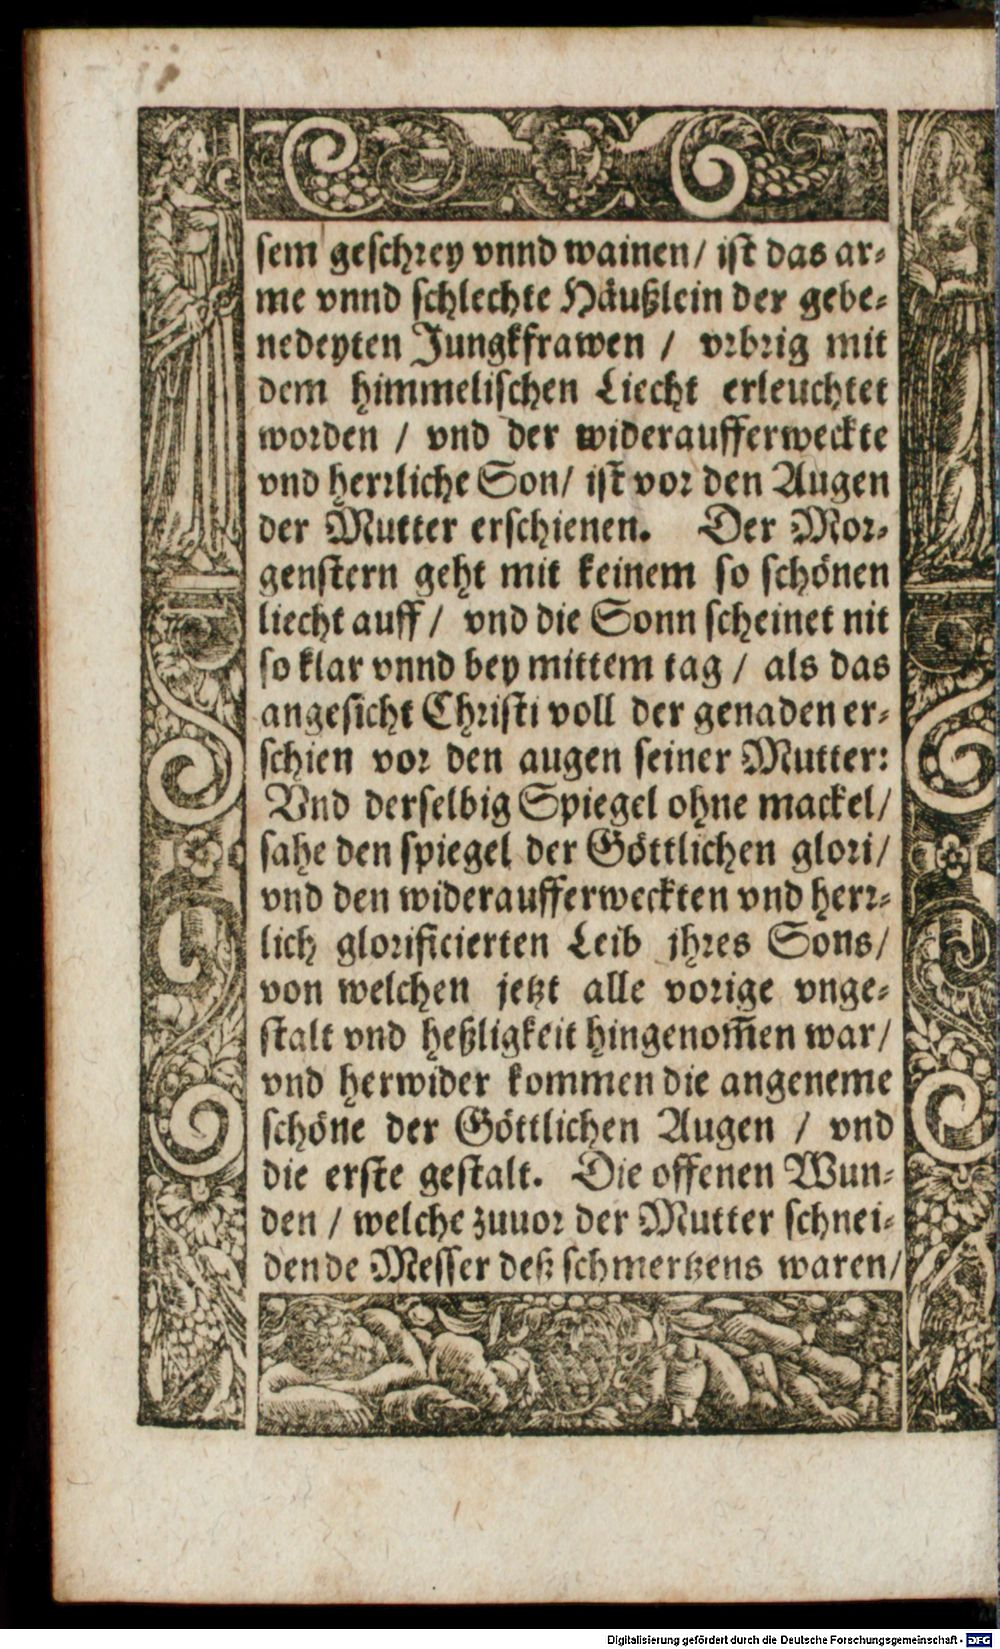 sem geschrey vnnd wainen/ ist das ar-
me vnnd schlechte Häußlein der gebe-
nedeyten Jungkfrawen / vrbrig mit
dem himmelischen Liecht erleuchtet
worden / vnd der wideraufferweckte
vnd herrliche Son/ ist vor den Augen
der Mutter erschienen. Der Mor-
genstern geht mit keinem so schönen
liecht auff/ vnd die Sonn scheinet nit
so klar vnnd bey mittem tag / als das
angesicht Christi voll der genaden er-
schien vor den augen seiner Mutter:
Vnd derselbig Spiegel ohne mackel/
sahe den spiegel der Göttlichen glori/
vnd den wideraufferweckten vnd herr-
lich glorificierten Leib jhres Sons/
von welchen jetzt alle vorige vnge-
stalt vnd heßligkeit hingenom̃en war/
vnd herwider kommen die angeneme
schöne der Göttlichen Augen / vnd
die erste gestalt. Die offenen Wun-
den / welche zuuor der Mutter schnei-
dende Messer deß schmertzens waren/
Digitalisierung gefördert durch die Deutsche Forschungsgemeinschaft - DFG